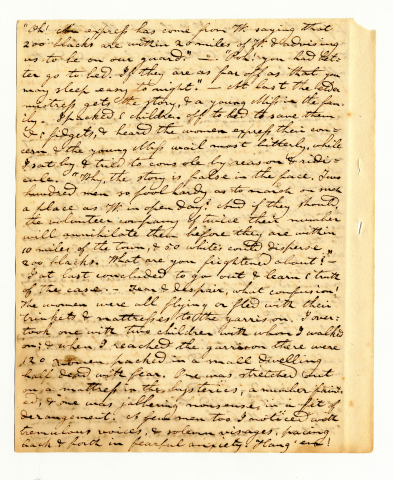 "Oh! An express has come from W. saying that
200 blacks are within 20 miles of W. & advising
us to be on our guard." — "Poh! you had bet-
ter go to bed. If they are as far off as that you
may sleep easy to night." — At last the
mistress gets the story, & a young Miss in the fam-
ily. I packed children off to bed to save them
fidgets, & heard the women express their con-
cern & the young Miss wail most bitterly, while
I sat by & tried to console by reason & ridi-
cule. "Why, the story is false in the face, Two
hundred men so fool hardy as to march on such
a place as W. in open day! And if they should,
the volunteer company of twice their number
will annihilate them before they are within
10 miles of the town, & 50 whites could disperse
200 blacks. What are you frightened about?" —
I at last concluded to go out & learn truth
of the case. — Fear & despair, what confusion!
The women were all flying or fled with their
trinkets & mattresses to the garrison. I over-
took one with two children with whom I walked
on; & when I reached the garrison there were
120 women packed in a small dwelling
half dead with fear. One was stretched out
on a mattress in the hysterics, a number faint-
& one was jabbering nonsense in a fit of
derangement. A few men too I noticed with
tremulous voices, & solemn visages, pacing
back & forth in fearful anxiety. Hang 'em!